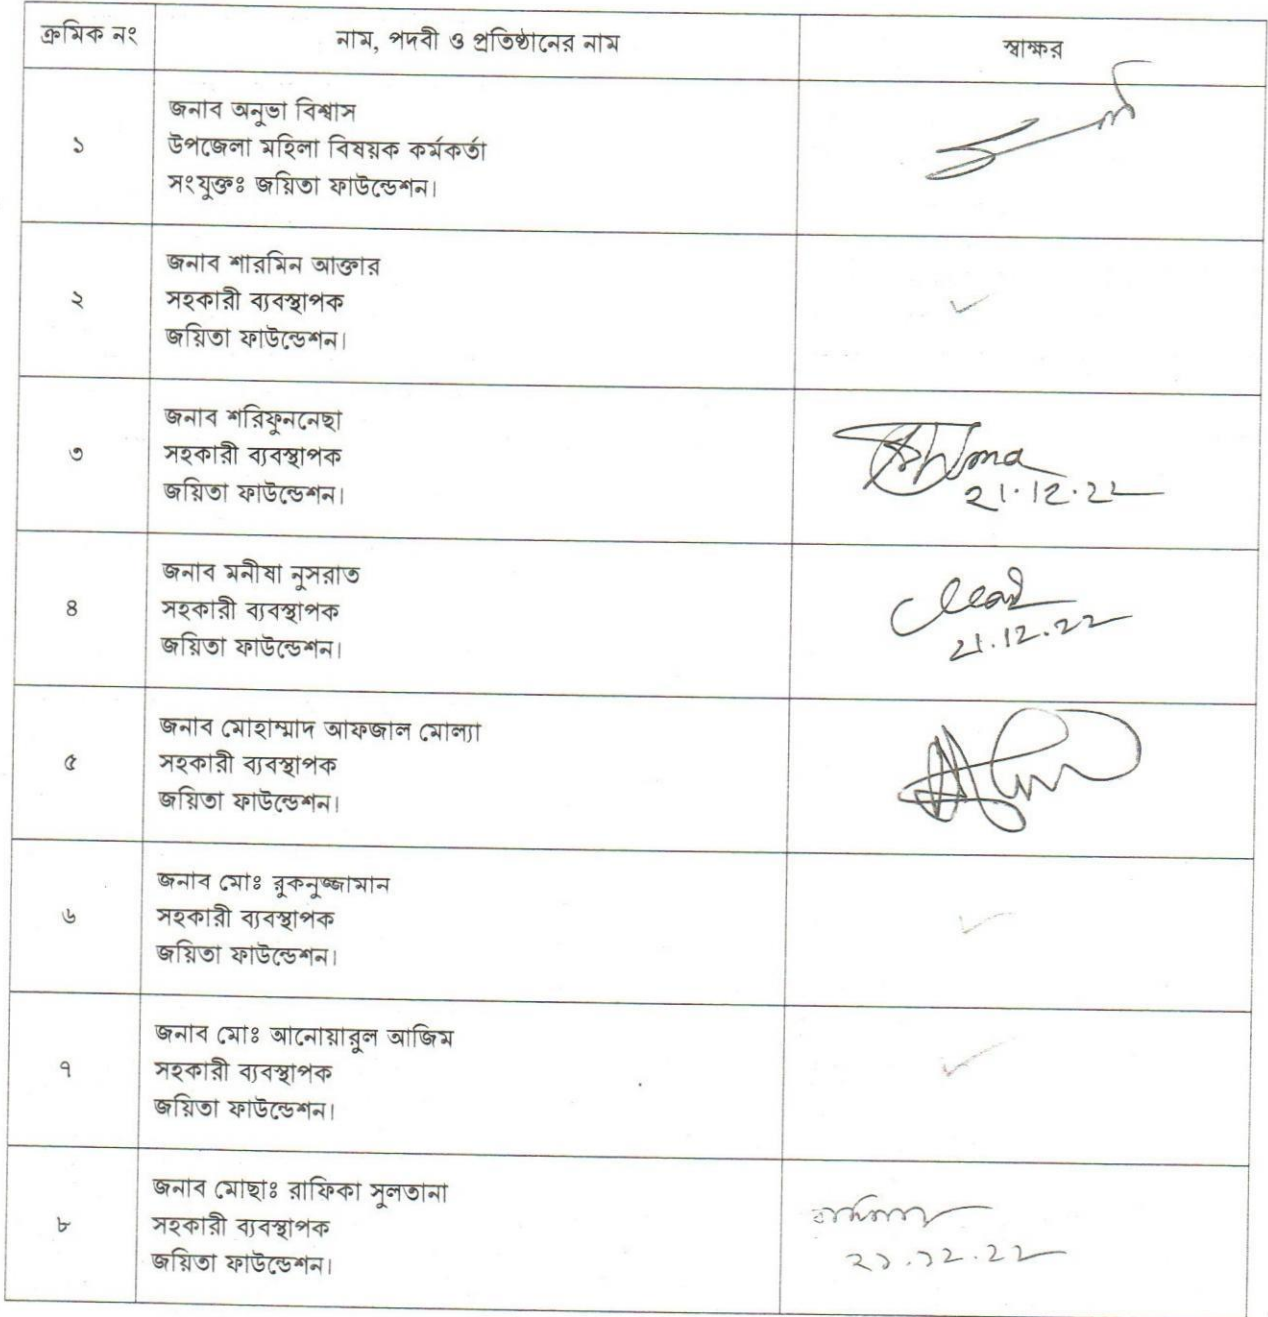 ক্রমিক নং নাম, পদবী ও প্রতিষ্ঠানের নাম স্বাক্ষর
জনাব অনুভা বিশ্বাস
১ উপজেলা মহিলা বিষয়ক কর্মকর্তা
সংযুক্তঃ জয়িতা ফাউন্ডেশন।
জনাব শারমিন আক্তার
২ সহকারী ব্যবস্থাপক
জয়িতা ফাউন্ডেশন।
জনাব শরিফুননেছা
৩ সহকারী ব্যবস্থাপক
জয়িতা ফাউন্ডেশন। 21.12.22
জনাব মনীষা নুসরাত
৪ সহকারী ব্যবস্থাপক
জয়িতা ফাউন্ডেশন। 21.12.22
জনাব মোহাম্মাদ আফজাল মোল্যা
৫ সহকারী ব্যবস্থাপক
জয়িতা ফাউন্ডেশন।
জনাব মোঃ রুকনুজ্জামান
৬ সহকারী ব্যবস্থাপক
জয়িতা ফাউন্ডেশন।
জনাব মোঃ আনোয়ারুল আজিম
৭ সহকারী ব্যবস্থাপক
জয়িতা ফাউন্ডেশন।
জনাব মোছাঃ রাফিকা সুলতানা
৮ সহকারী ব্যবস্থাপক
জয়িতা ফাউন্ডেশন। ২১.১২.২২